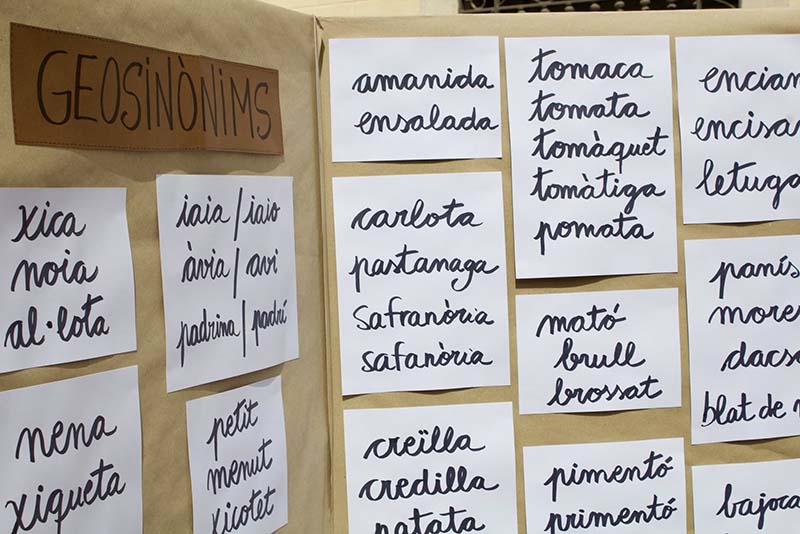 GEOSINÒNIMS
xica
noia
al·lota
iaia / iaio
àvia / avi
padrina / padrí
nena
xiqueta
petit
menut
xicotet
amanida
ensalada
carlota
pastanaga
safranòria
safanòria
creïlla
credilla
patata
tomaca
tomata
tomàquet
tomàtiga
pomata
mató
brull
brossat
pimentó
primentó
enciam
encisam
letuga
panís
dacsa
blat de
bajoca